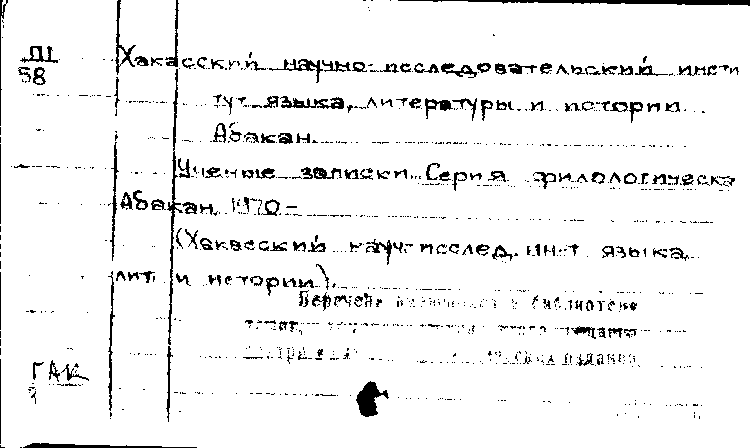 П1
58
Хакасский научно-исследовательский инсти
тут языка, литературы и истории.
Абакан.
Ученые записки. Серия филологическа
Абакан, 1970-
(Хакасский науч.-исслед. ин-т языка
лит. и истории).
Перечень в библиотеке
издания
ГАК